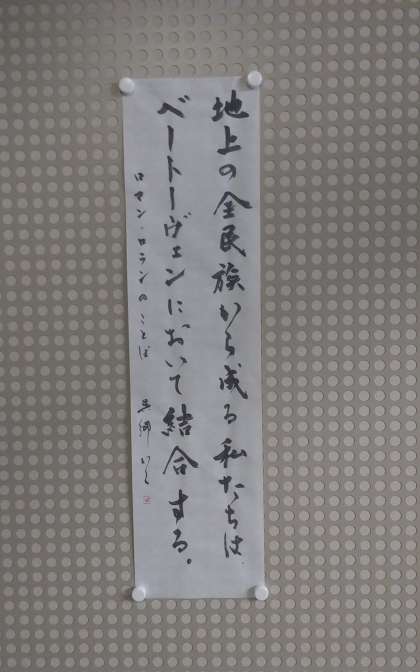 地上の全民族から成る私たちは
ベートーヴェンにおいて結合する。
ロマン・ロランのことば